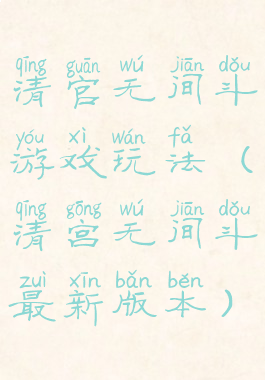 qīng guān wú jiān dǒu
清官无间斗
yóu xì wán fǎ
游戏玩法（
qīng gōng wú jiān dǒu
清宫无间斗
zuì xīn bǎn běn
最新版本）